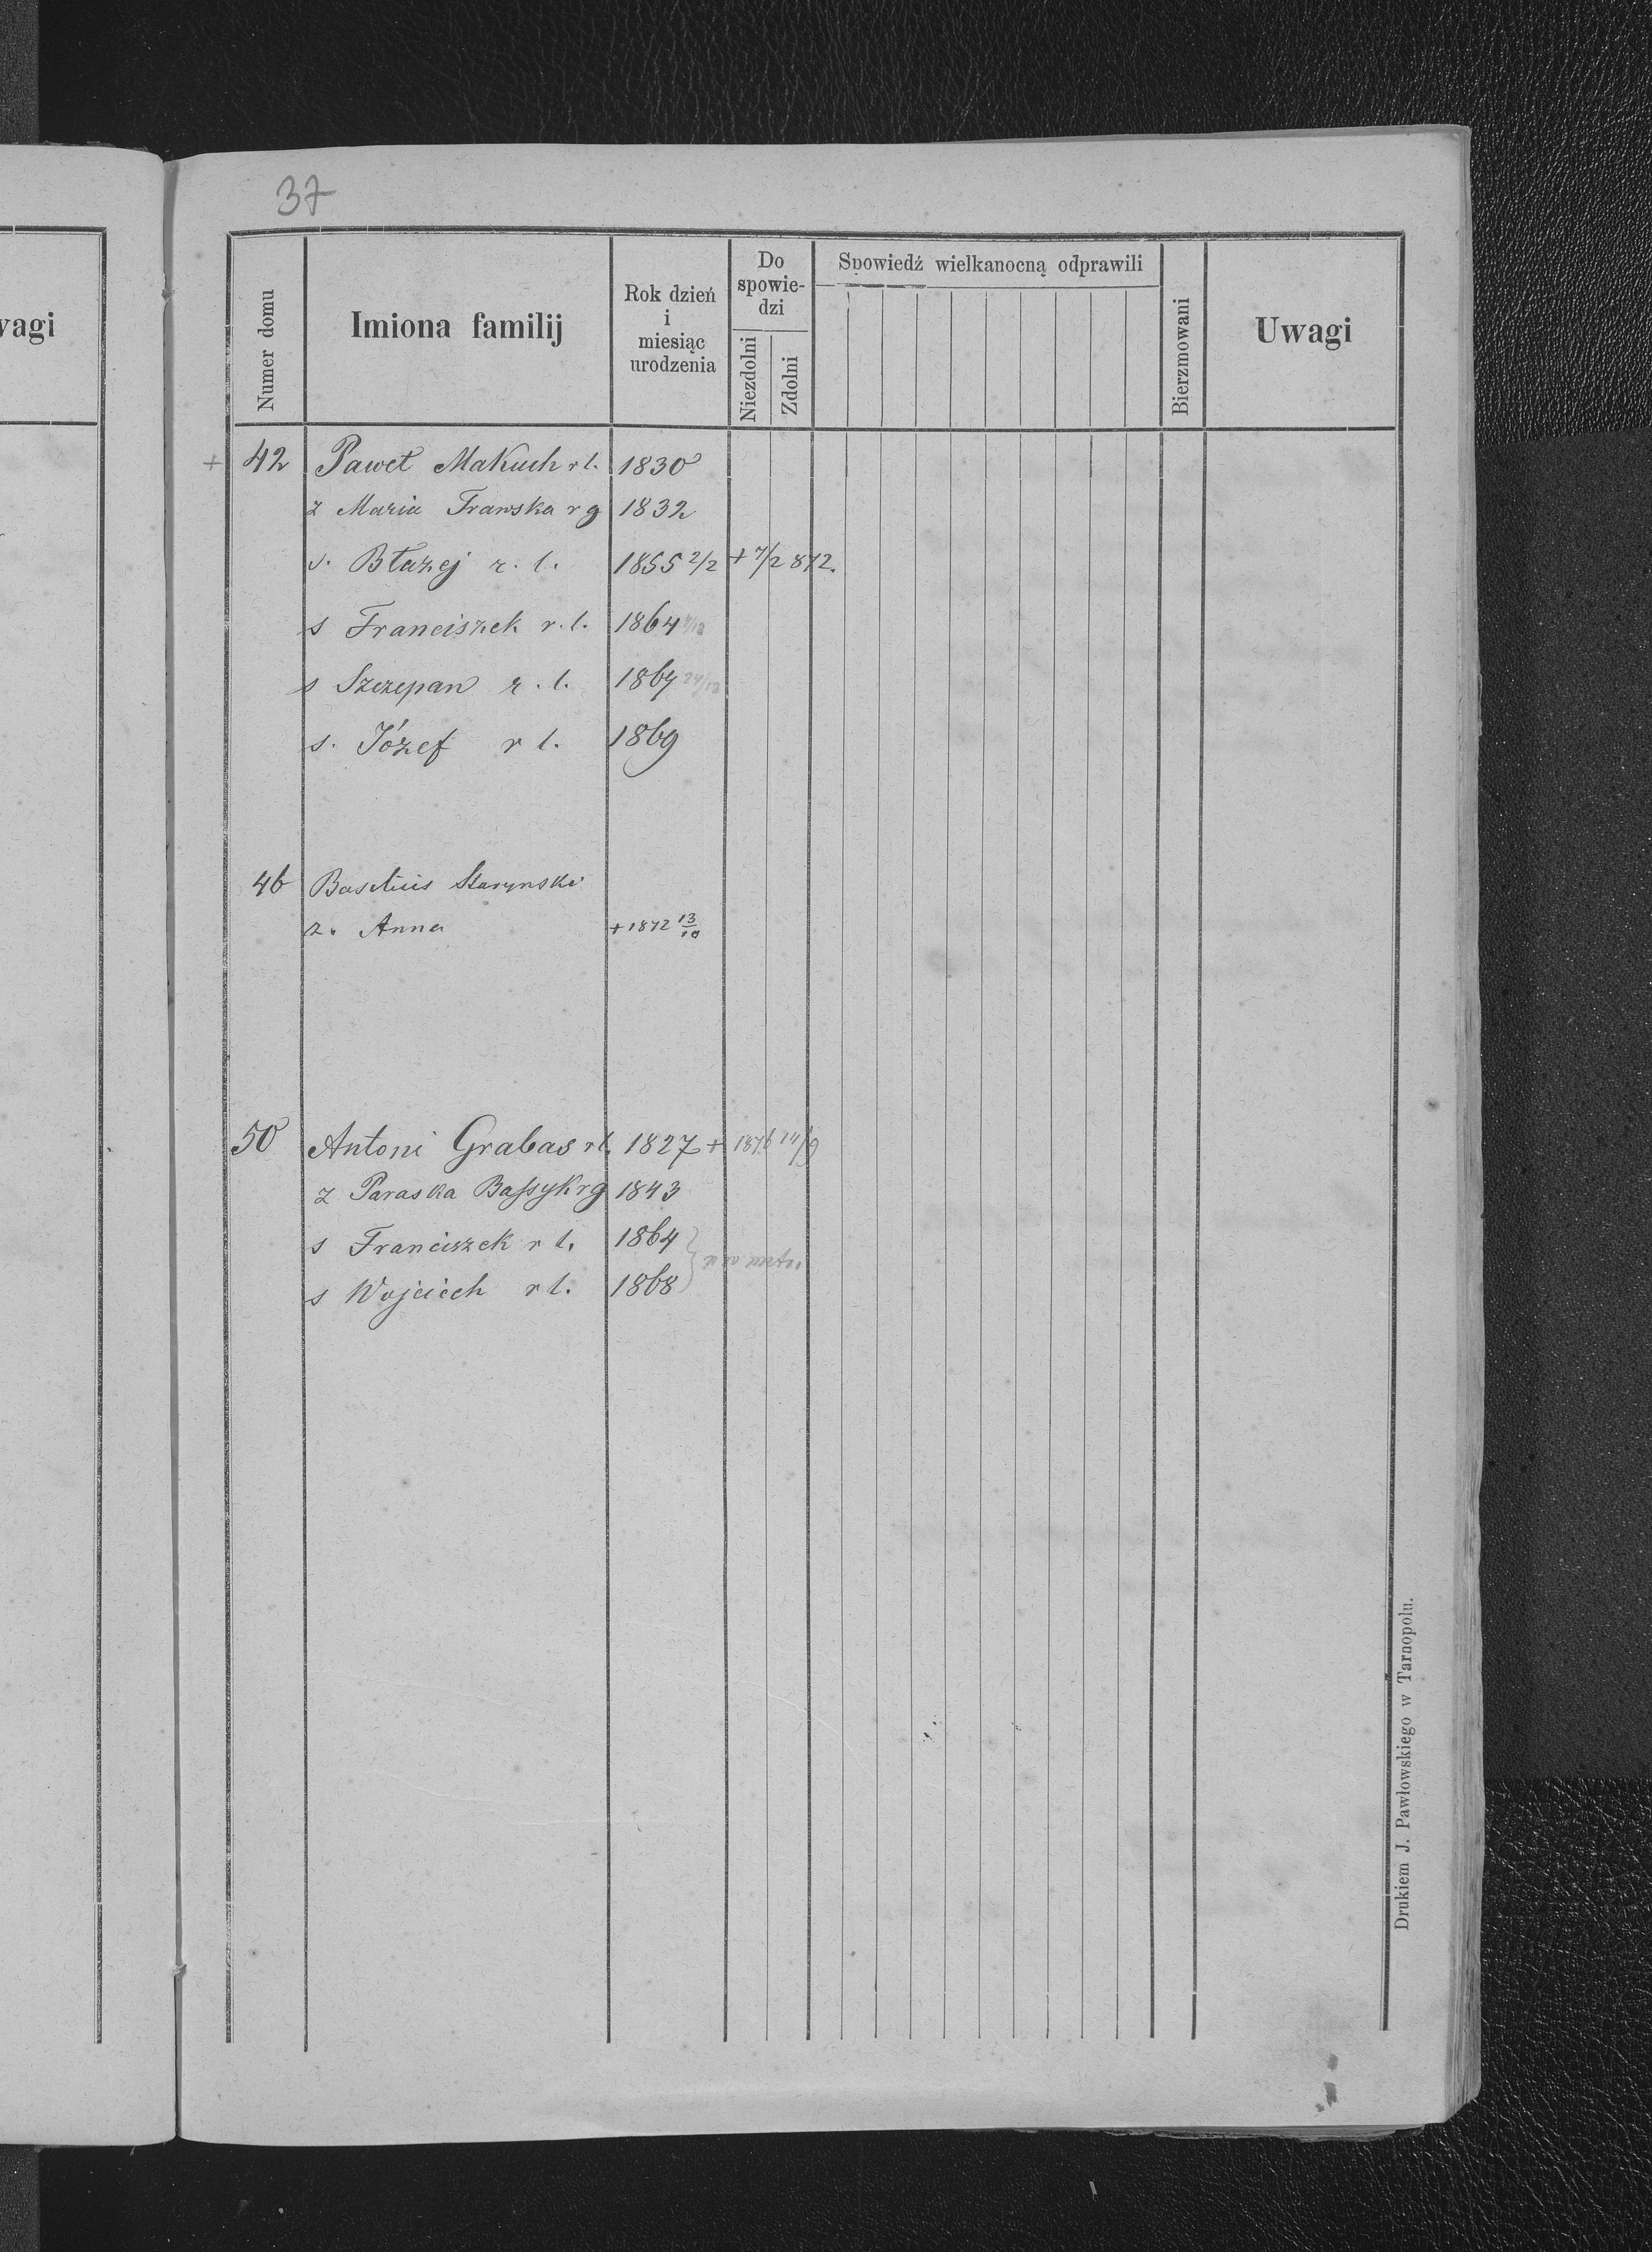 37
wagi
Numer domu
Imiona familij
Rok dzień
i
miesiąc
urodzenia
Do
spowie-
dzi
Niezdolni
Zdolni
Spowiedź wielkanocną odprawili
Bierzmowani
Uwagi
+ 42 Paweł Makuch r l. 1830
z Maria r g 1832
s. Błażej r. l. 1855 2/2 + 7/2 872.
s Franciszek r. l. 1864
s Szczepan r. l. 1867
s. Józef r l. 1869
46 Basilius
z. Anna + 1872 13/10
50 Antoni Grabas r l. 1827 + 1876 14/9
z Paraska Bassyk r g 1843
s Franciszek r l. 1864
s Wojciech r l. 1868
Drukiem J. Pawłowskiego w Tarnopolu.